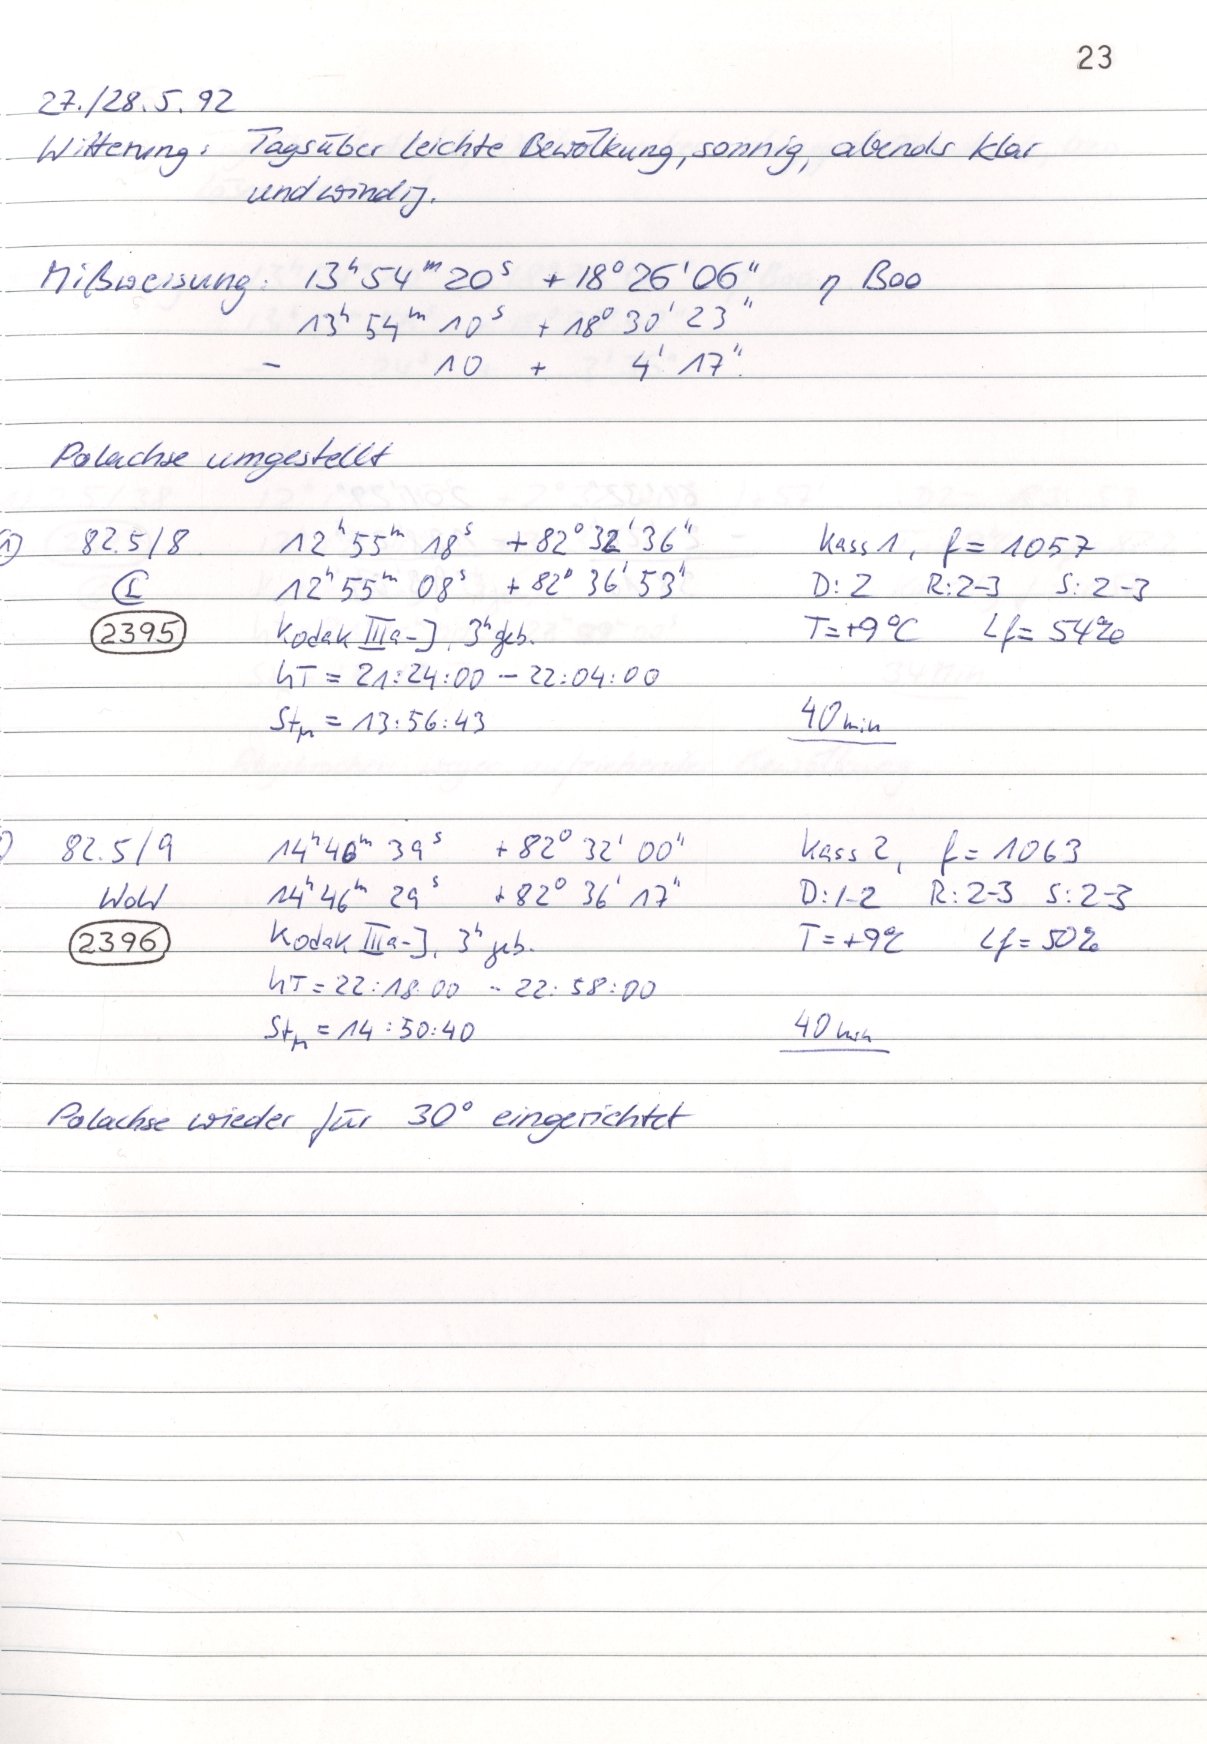 23
27./28.5.92
Witterung: Tagsüber leichte Bewölkung, sonnig, abends klar
und windig.
Mißweisung: 13ʰ 54ᵐ 20ˢ +18° 26' 06" η Boo
13ʰ 54ᵐ 10ˢ +18° 30' 23"
- 10 + 4' 17"
Polachse umgestellt
1) 82.5/8 12ʰ 55ᵐ 18ˢ +82° 32' 36" Kass 1, f = 1057
12ʰ 55ᵐ 08ˢ +82° 36' 53" D: 2 R: 2-3 S: 2-3
2395 Kodak IIIa-J, 3ʰ geb. T=+9°C Lf= 54%
UT = 21:24:00 - 22:04:00
Stₘ = 13:56:43 40 min
) 82.5/9 14ʰ 46ᵐ 39ˢ +82° 32' 00" Kass 2, f = 1063
WoW 14ʰ 46ᵐ 29ˢ +82° 36' 17" D: 1-2 R: 2-3 S: 2-3
2396 Kodak IIIa-J, 3ʰ geb. T=+9°C Lf= 50%
UT = 22:18:00 - 22:58:00
Stₘ = 14:50:40 40 min
Polachse wieder für 30° eingerichtet